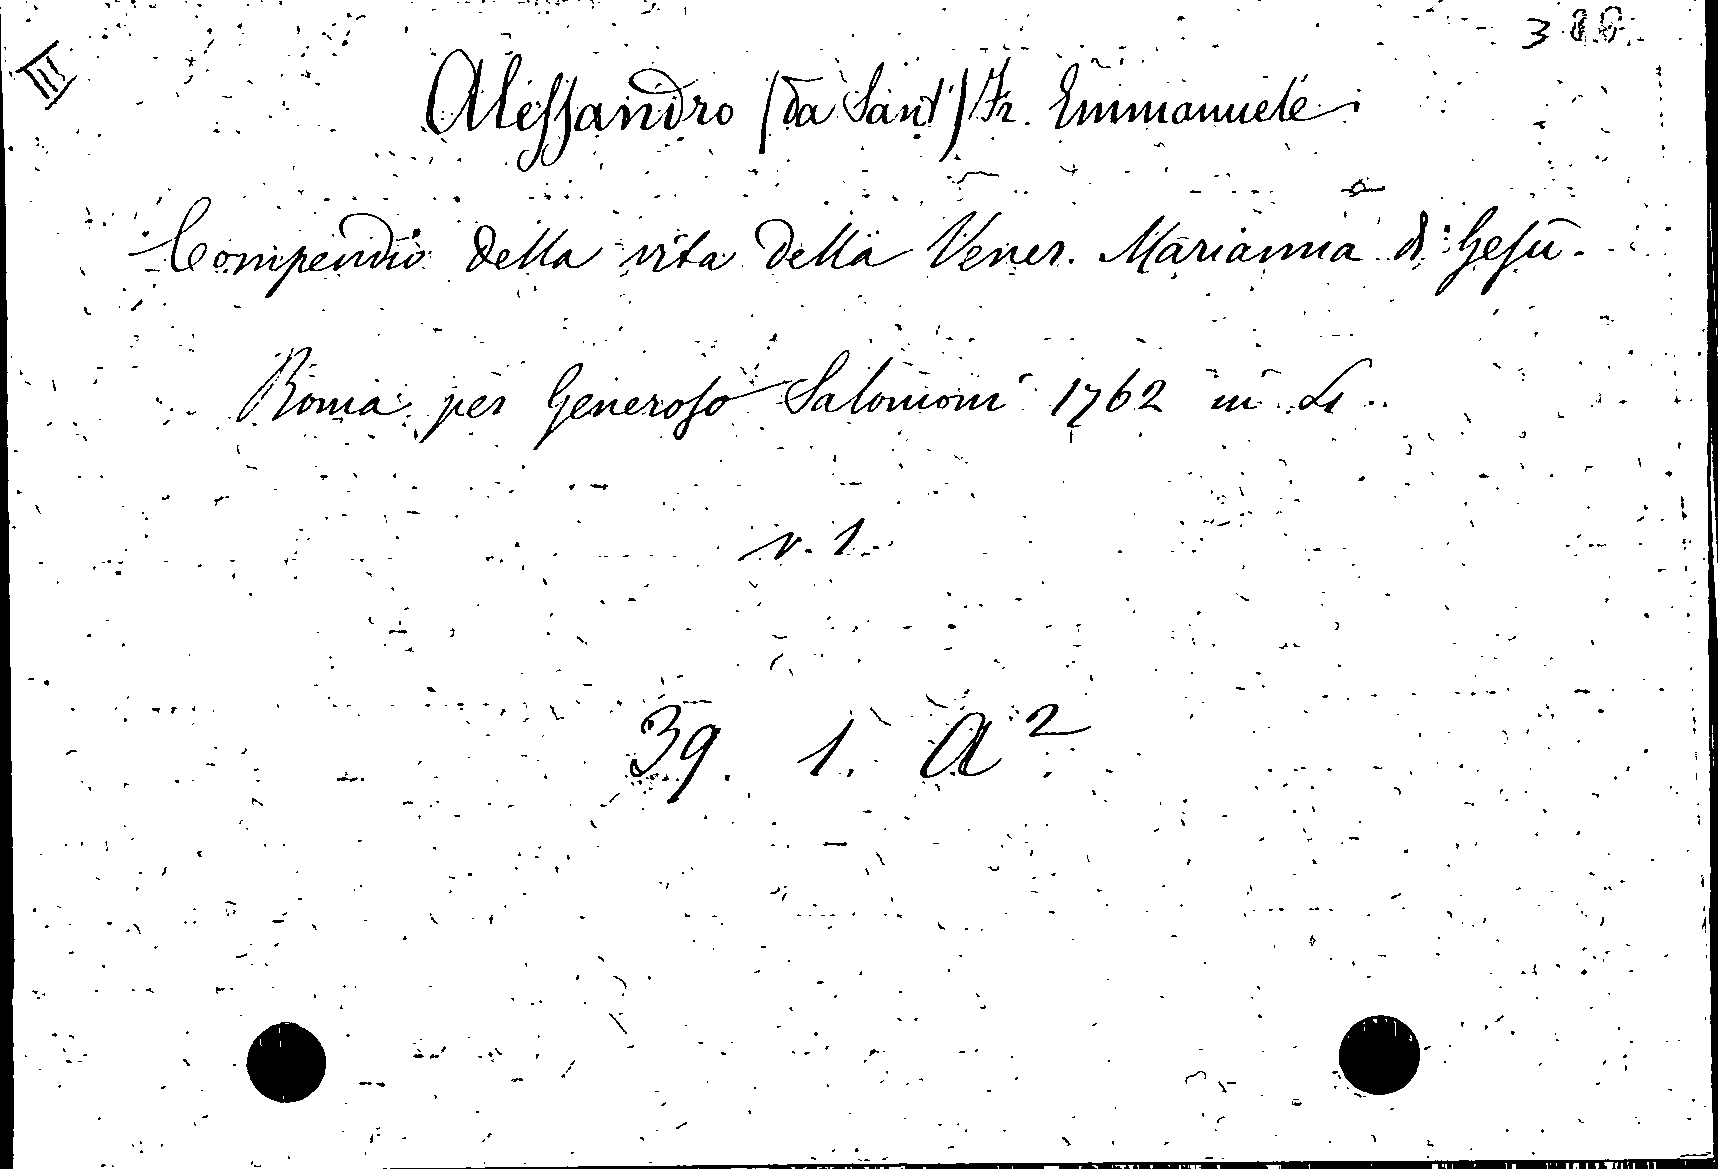 III
Alessandro (da Sant') Fr. Emmanuele
Compendio della vita della Vener. Marianna di Gesù.
Roma per Generoso Salomoni 1762 in 4.
v. 1.
39. 1. A 2